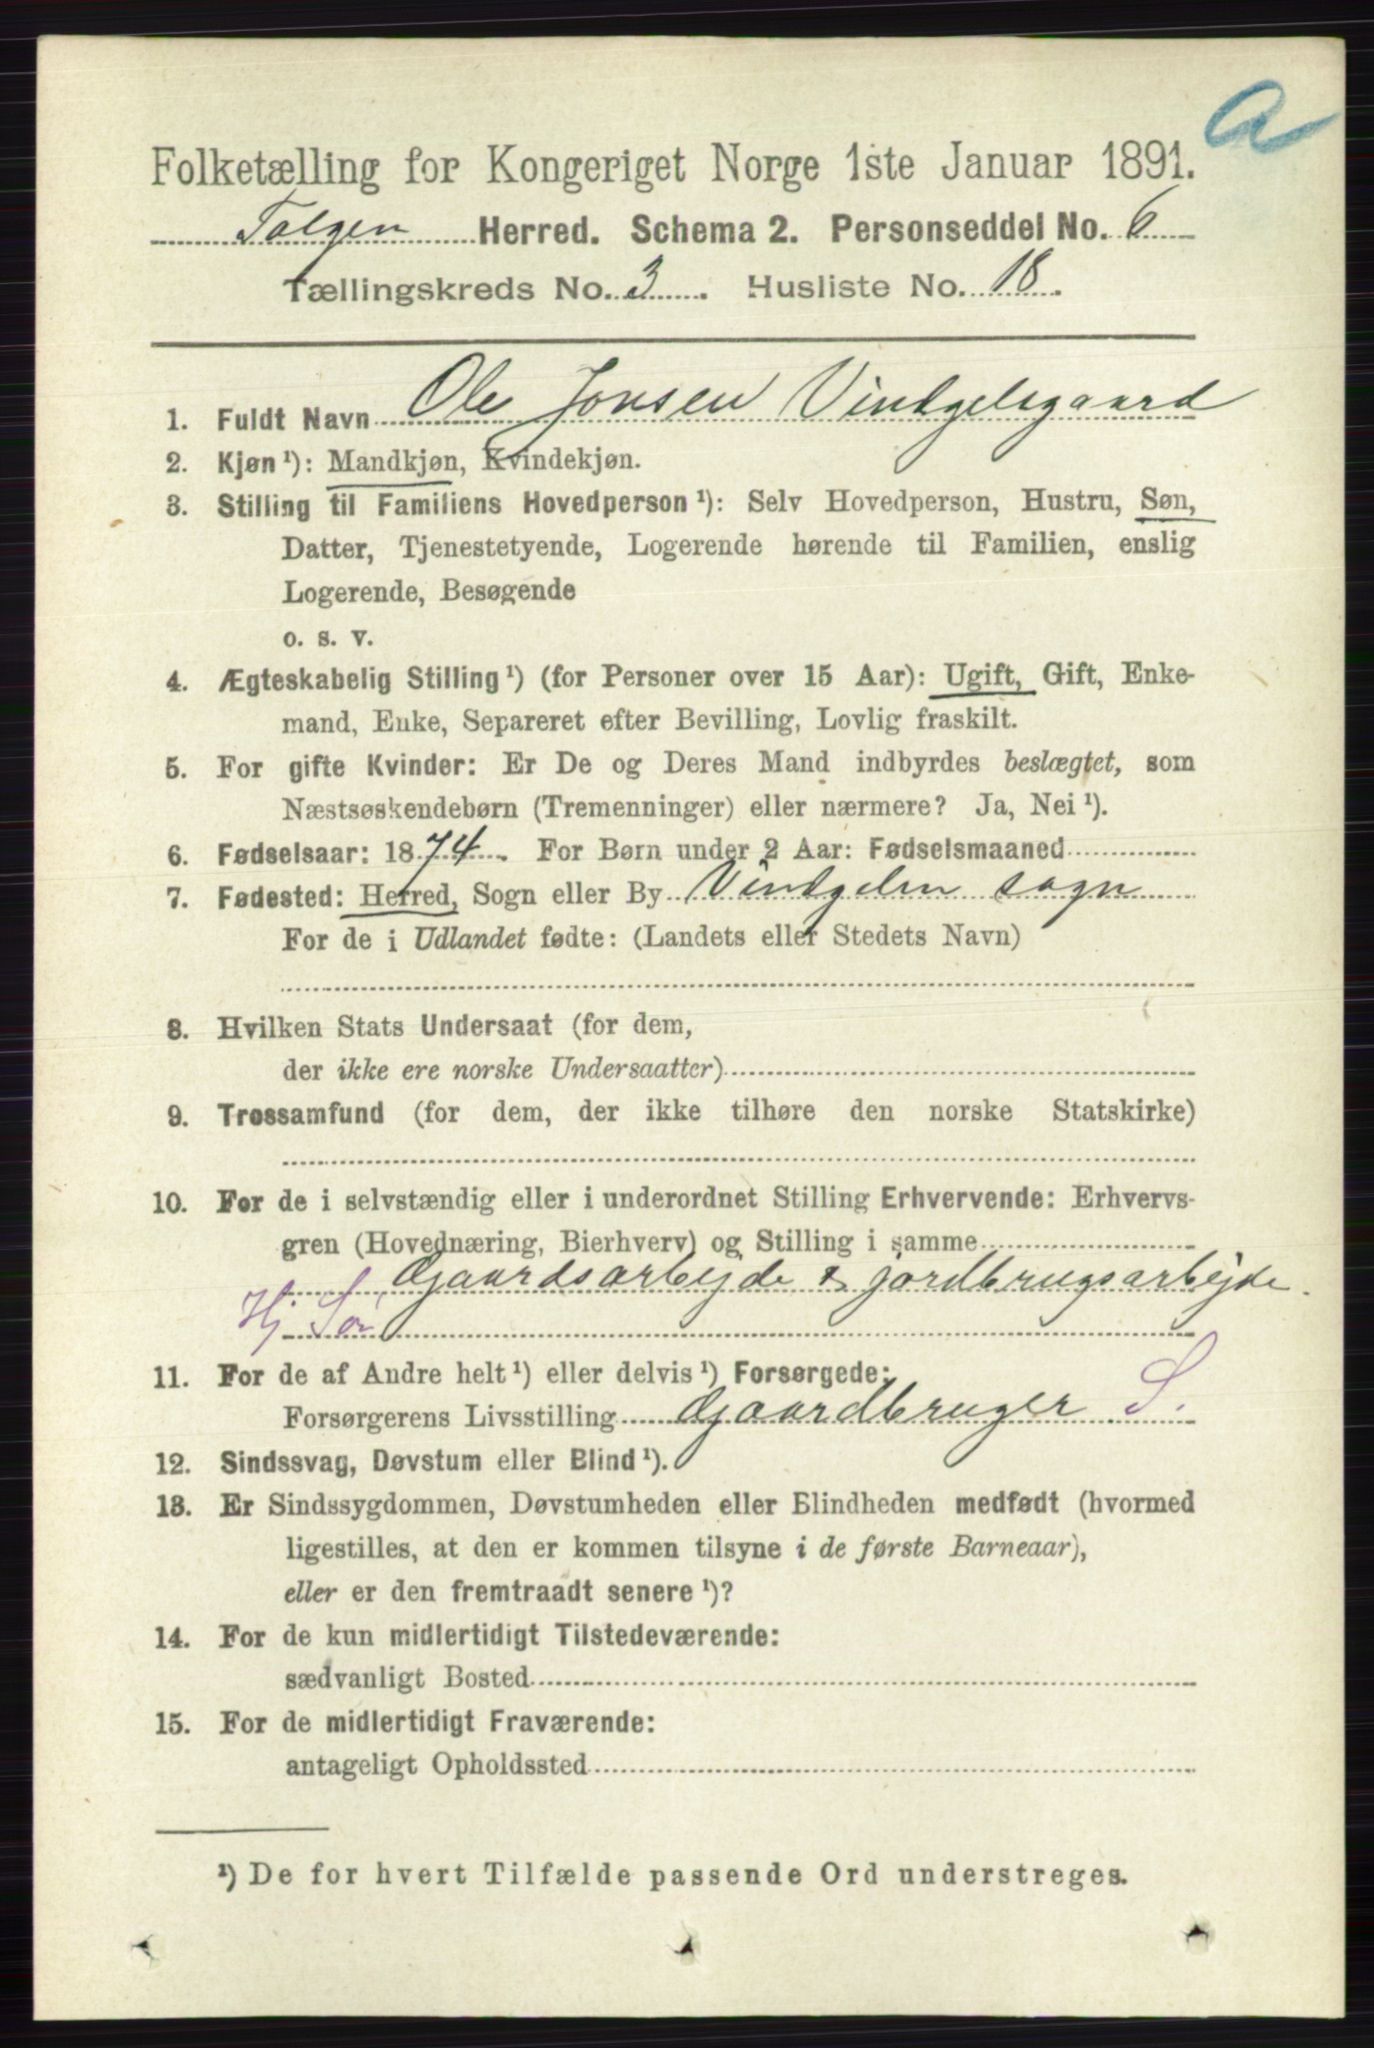 a
Folketælling for Kongeriget Norge 1ste Januar 1891.
Tolgen Herred. Schema 2. Personseddel No. 6
Tællingskreds No. 3. Husliste No. 18.
1. Fuldt Navn Ole Jonsen Vintgelsgaard
2. Kjøn¹): Mandkjøn, Kvindekjøn.
3. Stilling til Familiens Hovedperson¹): Selv Hovedperson, Hustru, Søn,
Datter, Tjenestetyende, Logerende hørende til Familien, enslig
Logerende, Besøgende
o. s. v.
4. Ægteskabelig Stilling¹) (for Personer over 15 Aar): Ugift, Gift, Enke-
mand, Enke, Separeret efter Bevilling, Lovlig fraskilt.
5. For gifte Kvinder: Er De og Deres Mand indbyrdes beslægtet, som
Næstsøskendebørn (Tremenninger) eller nærmere? Ja, Nei¹).
6. Fødselsaar: 1874. For Børn under 2 Aar: Fødselsmaaned
7. Fødested: Herred, Sogn eller By Vintgelen sogn
For de i Udlandet fødte: (Landets eller Stedets Navn)
8. Hvilken Stats Undersaat (for dem,
der ikke ere norske Undersaatter)
9. Trossamfund (for dem, der ikke tilhøre den norske Statskirke)
10. For de i selvstændig eller i underordnet Stilling Erhvervende: Erhvervs-
gren (Hovednæring, Bierhverv) og Stilling i samme
Gaardsarbejde & jordbrugsarbejde.
Hj Sø
11. For de af Andre helt¹) eller delvis¹) Forsørgede:
Forsørgerens Livsstilling Gaardbruger S.
12. Sindssvag, Døvstum eller Blind¹).
13. Er Sindssygdommen, Døvstumheden eller Blindheden medfødt (hvormed
ligestilles, at den er kommen tilsyne i de første Barneaar),
eller er den fremtraadt senere¹)?
14. For de kun midlertidigt Tilstedeværende:
sædvanligt Bosted
15. For de midlertidigt Fraværende:
antageligt Opholdssted
¹) De for hvert Tilfælde passende Ord understreges.